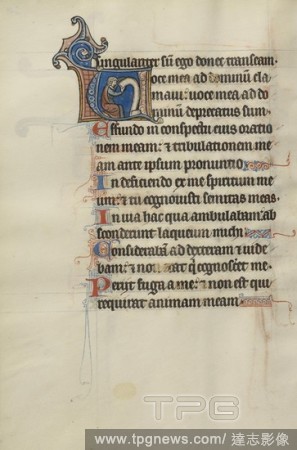 singulariter sū ego donec transeam.
oce mea ad dominū cla
maui: uoce mea ad do
minū deprecatus sum.
Effundo in conspectu eius oratio
nem meam: et tribulationem me
am ante ipsum pronuntio.
In deficiendo ex me spiritum me
um: et tu cognouisti semitas meas.
In uia hac qua ambulabam: ab
sconderunt laqueum michi.
Considerabā ad dexteram et uide
bam: et non erat qi cognosceret me.
Perijt fuga a me: et non est qui
requirat animam meam.
TPG
www.tpgnews.com/達志影像